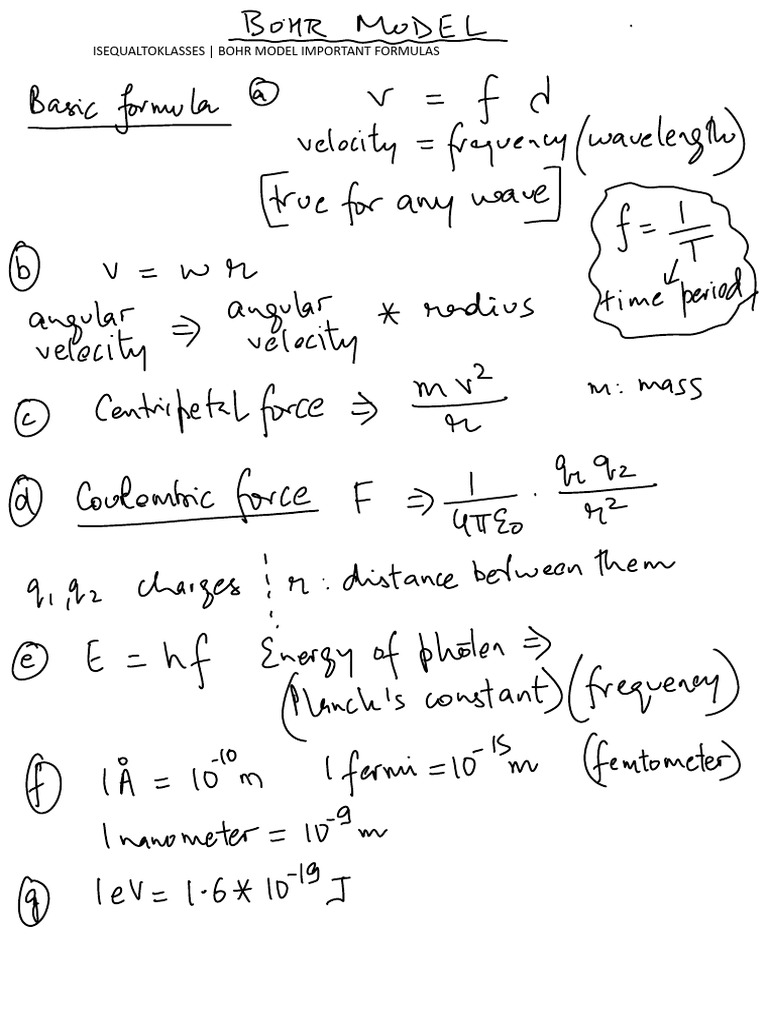 BOHR MODEL
ISEQUALTOKLASSES | BOHR MODEL IMPORTANT FORMULAS
Basic formula ⓐ v = f d
velocity = frequency (wavelength)
[true for any wave]
f = 1/T
time period
ⓑ v = w r
angular velocity ⇒ angular velocity * radius
ⓒ Centripetal force ⇒ mv²/r m: mass
ⓓ Coulombic force F ⇒ 1/4πε₀ · q₁ q₂/r²
q₁, q₂ charges r: distance between them
ⓔ E = hf Energy of photon ⇒
(Planck's constant) (frequency)
ⓕ 1Å = 10⁻¹⁰ m 1 fermi = 10⁻¹⁵ m (femtometer)
1 nanometer = 10⁻⁹ m
ⓖ 1eV = 1.6 * 10⁻¹⁹ J